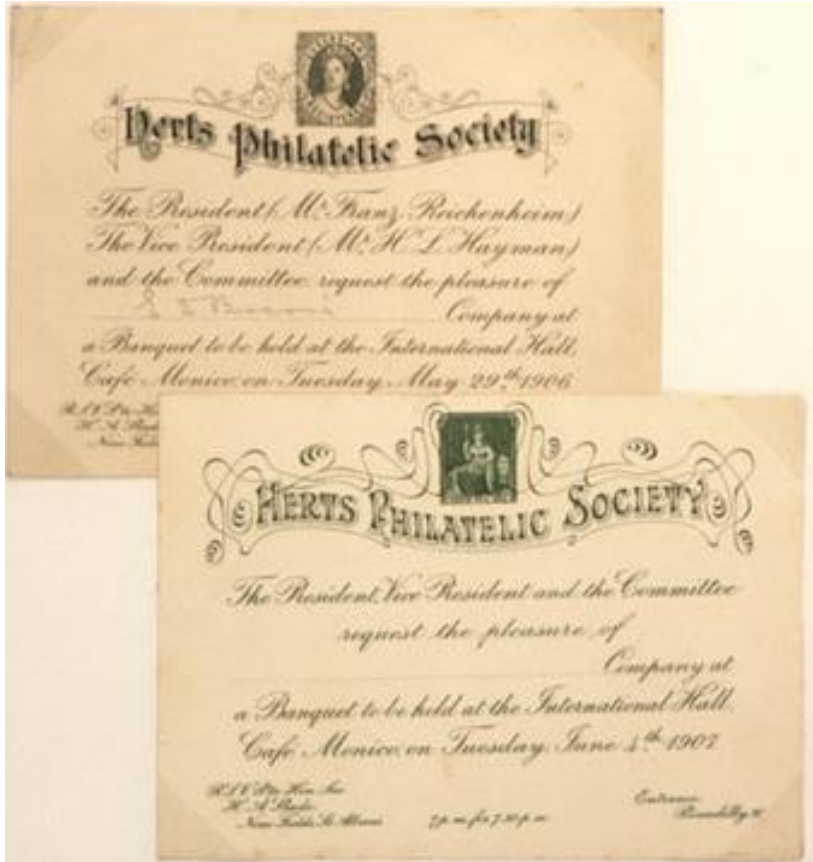 Herts Philatelic Society
The President (Mr. Franz Reichenheim)
The Vice President (Mr. H. L. Hayman)
and the Committee request the pleasure of
Company at
a Banquet to be held at the International Hall,
Café Monico, on Tuesday, May 29th 1906
H. A. Slade
HERTS PHILATELIC SOCIETY
The President, Vice President and the Committee
request the pleasure of
Company at
a Banquet to be held at the International Hall,
Café Monico, on Tuesday, June 4th 1907
R.S.V.P. to Hon. Sec.
H. A. Slade
Nine Fields, St. Albans
7 p.m. for 7.30 p.m.
Entrance
Piccadilly W.